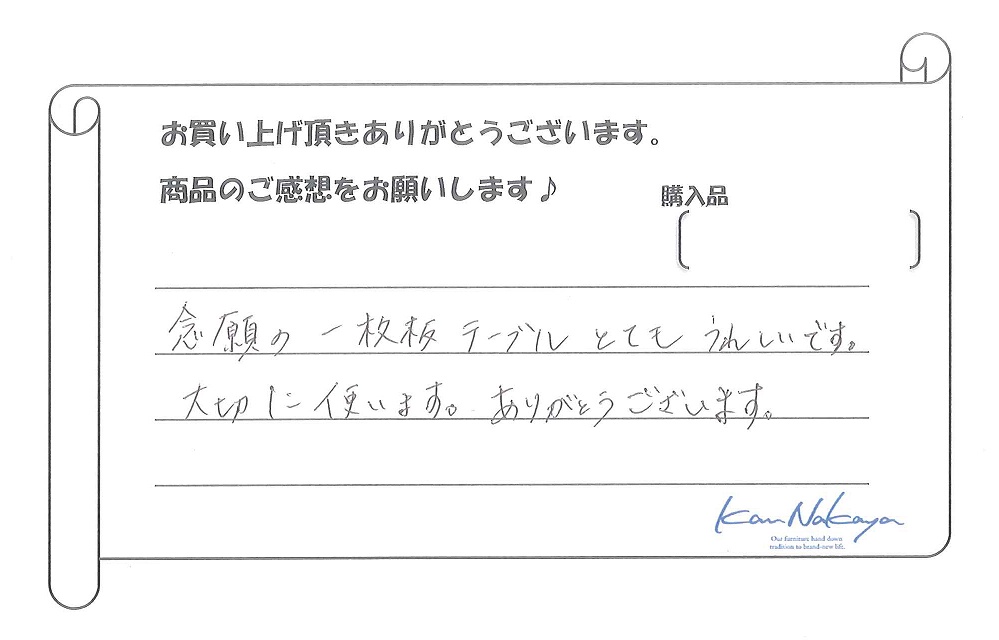 お買い上げ頂きありがとうございます。
商品のご感想をお願いします♪
購入品
念願の一枚板テーブルとてもうれしいです。
大切に使います。ありがとうございます。
Kan Nakaya
Our furniture hand down
tradition to brand-new life.